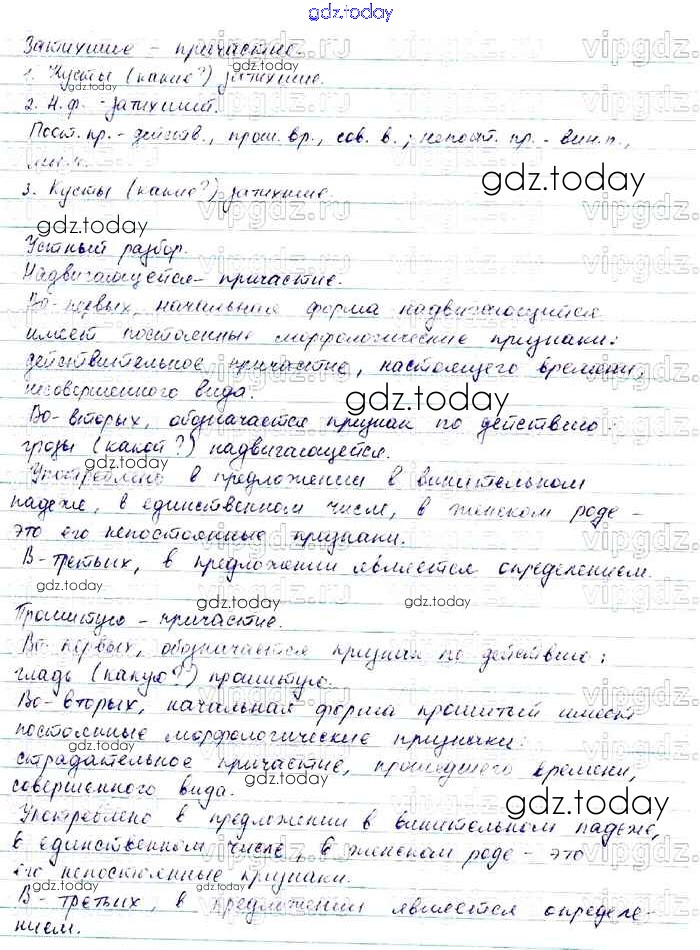 gdz.today
Затихшие - причастие.
1. Кусты (какие?) затихшие.
2. Н.ф. - затихший.
Пост. пр. - действ., прош. вр., сов. в.; непост. пр. - вин.п.,
мн.ч.
3. Кусты (какие?) затихшие.
Устный разбор.
Надвигающейся - причастие.
Во-первых, начальная форма надвигающийся
имеет постоянные морфологические признаки:
действительное причастие, настоящего времени,
несовершенного вида.
Во-вторых, обозначается признак по действию -
грозы (какой?) надвигающейся.
Употреблено в предложении в винительном
падеже, в единственном числе, в женском роде -
это его непостоянные признаки.
В-третьих, в предложении является определением.
Прошитую - причастие.
Во-первых, обозначается признак по действию:
гладь (какую?) прошитую.
Во-вторых, начальная форма прошитый имеет
постоянные морфологические признаки:
страдательное причастие, прошедшего времени,
совершенного вида.
Употреблено в предложении в винительном падеже,
в единственном числе, в женском роде - это
его непостоянные признаки.
В-третьих, в предложении является определе-
нием.